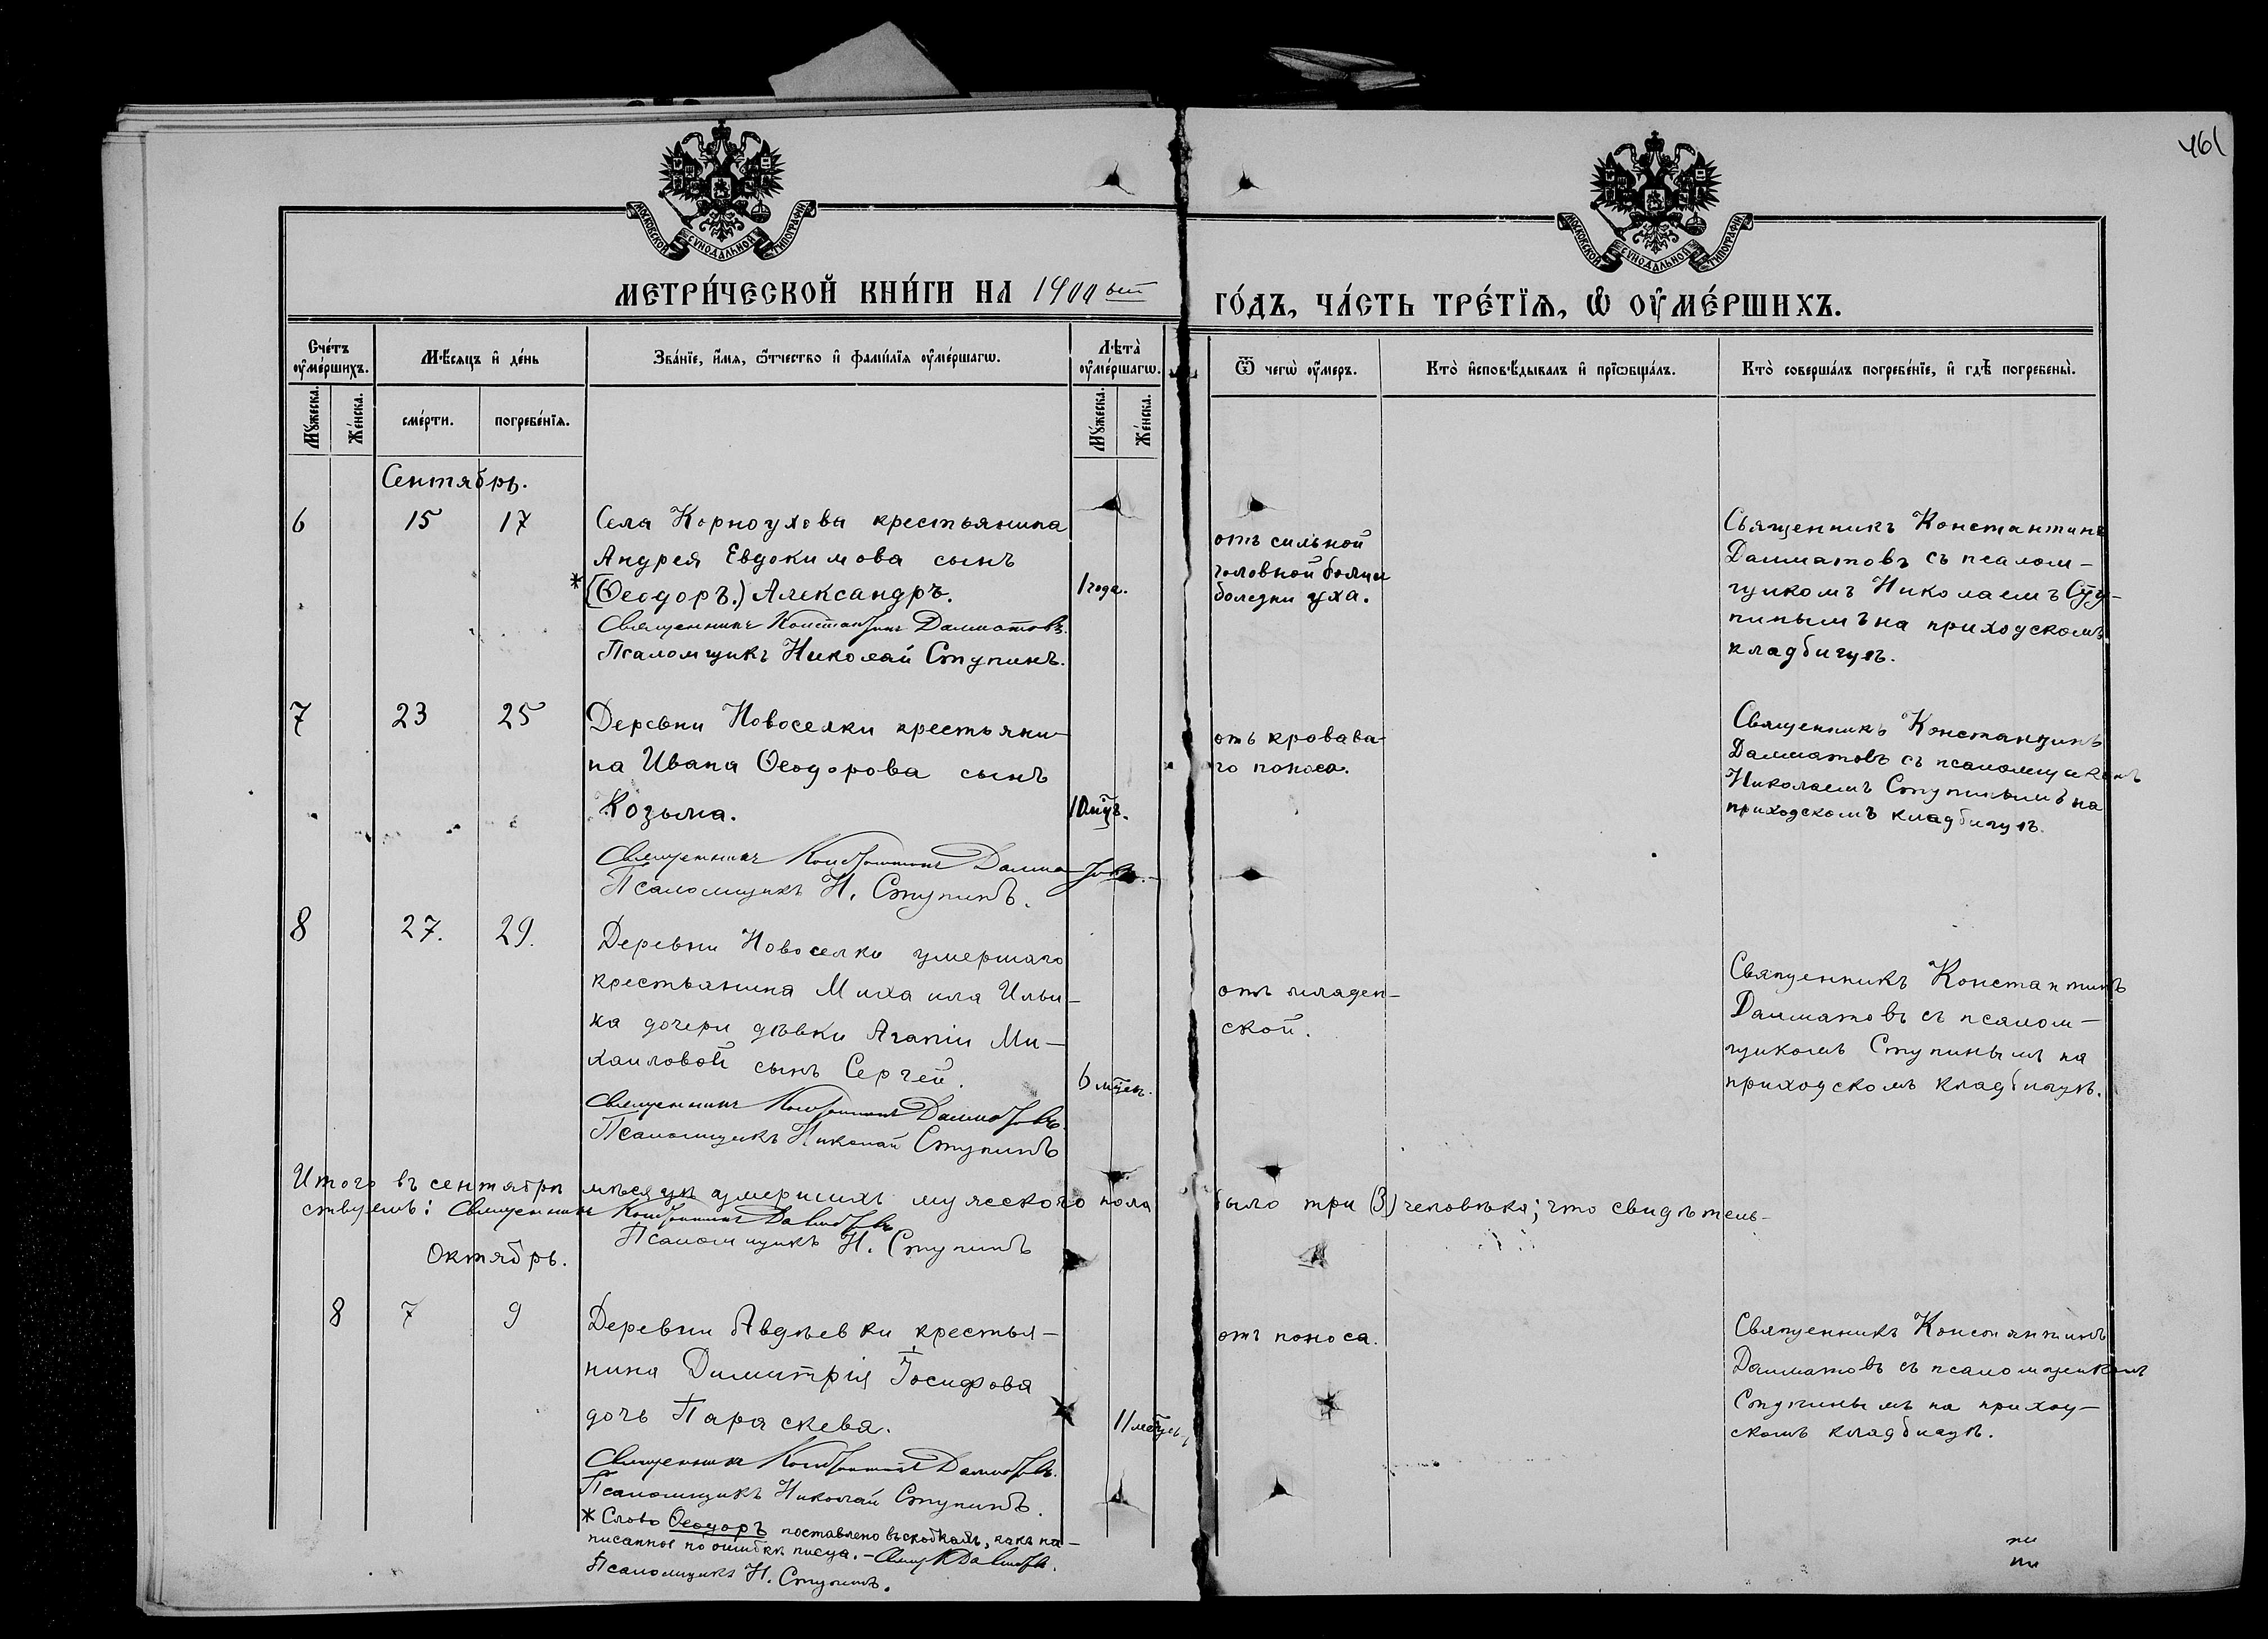 461
МОСКОВСКОЙ СУНОДАЛЬНОЙ ТИПОГРАФІИ
МОСКОВСКОЙ СУНОДАЛЬНОЙ ТИПОГРАФІИ
МЕТРИ́ЧЕСКОЙ КНИ́ГИ НА 1900 ый
ГО́ДЪ, ЧА́СТЬ ТРЕ́ТЇѦ, Ѽ ОУ҆МЕ́РШИХЪ.
Сче́тъ оу҆ме́ршихъ.
Мꙋ́жеска.
Же́нска.
Мѣ́сѧцъ и҆ де́нь
сме́рти.
погребе́нїѧ.
Зва́нїе, и҆́мѧ, ѻ҆́тчество и҆ фами́лїѧ оу҆ме́ршагѡ.
Лѣта̀ оу҆ме́ршагѡ.
Мꙋ́жеска.
Же́нска.
Ѿ чегѡ̀ оу҆́меръ.
Кто̀ и҆сповѣ́дывалъ и҆ прїѡбща́лъ.
Кто̀ соверша́лъ погребе́нїе, и҆ гдѣ̀ погребены̀.
Сентябрь.
6
15
17
Села Корноухова крестьянина
Андрея Евдокимова сынъ
*(Ѳеодоръ.) Александръ.
1 года.
Священникъ Константинъ Далматовъ.
Псаломщикъ Николай Ступинъ.
отъ сильной
головной боли и
болезни уха.
Священникъ Константинъ
Далматовъ съ псалом-
щикомъ Николаемъ Сту-
пинымъ на приходскомъ
кладбищѣ.
7
23
25
Деревни Новоселки крестьяни-
на Ивана Ѳеодорова сынъ
Козьма.
10 мцъ.
Священникъ Константинъ Далматовъ.
Псаломщикъ Н. Ступинъ.
отъ кровава-
го поноса.
Священникъ Константинъ
Далматовъ съ псаломщикомъ
Николаемъ Ступинымъ на
приходскомъ кладбищѣ.
8
27.
29.
Деревни Новоселки умершаго
крестьянина Михаила Ильи-
на дочери дѣвки Агапіи Ми-
хаиловой сынъ Сергей.
6 мцев.
Священникъ Константинъ Далматовъ.
Псаломщикъ Николай Ступинъ
отъ младен-
ской.
Священникъ Константинъ
Далматовъ съ псалом-
щикомъ Ступинымъ на
приходскомъ кладбищѣ.
Итого въ сентябрѣ мѣсяцѣ умершихъ мужескаго пола было три (3) человѣка; что свидѣтель-
ствуемъ: Священникъ Константинъ Далматовъ
Псаломщикъ Н. Ступинъ
Октябрь.
8
7
9
Деревни Авдѣевки крестья-
нина Димитрія Іосифова
дочь Параскева.
11 мѣсцев
Священникъ Константинъ Далматовъ.
Псаломщикъ Николай Ступинъ.
отъ поноса.
Священникъ Константинъ
Далматовъ съ псаломщикомъ
Ступинымъ на приход-
скомъ кладбищѣ.
* Слово Ѳеодоръ поставлено въ скобкахъ, какъ на-
писанное по ошибкѣ писца. – Свящ. К Далматовъ.
Псаломщикъ Н. Ступинъ.